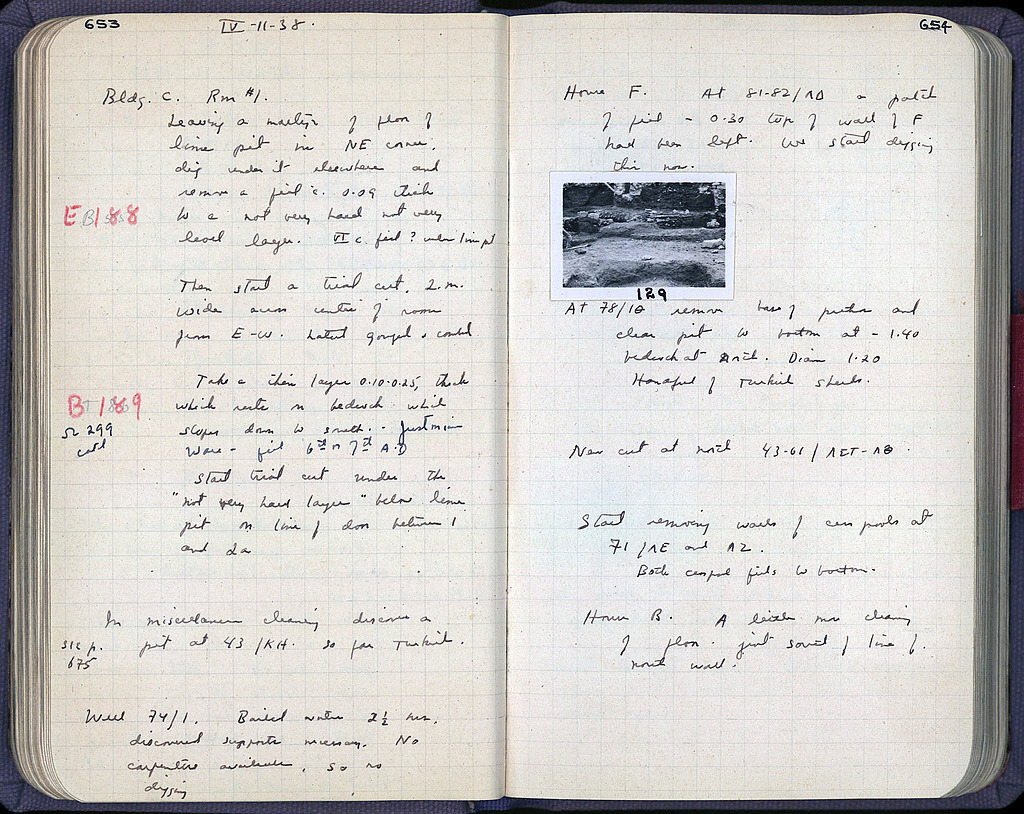 653
IV-11-38.
Bldg. C. Rm #1.
Leaving a martyr of floor of
lime pit in NE corner,
dig under it elsewhere and
remove a fill c. 0.09 thick
E B188
to a not very hard not very
level layer. VI c. fill? under lime pit
Then start a trial cut, 2.m.
wide across centre of room
from E-W. Latest gouged & combed
Take a thin layer 0.10-0.25, thick
B 189
which rests on bedrock which
Ω 299
slopes down to south. - Justinian
Ware - fill 6th or 7th A.D
Start trial cut under the
"not very hard layer" below lime
pit on line of door between 1
and 2a
In miscellaneous cleaning discover a
see p.
pit at 43/KH. So far Turkish.
675
Well 74/1. Bailed water 2½ hrs.
discovered supports necessary. No
carpenters available, so no
digging
654
House F. At 81-82/ΛΔ a patch
of fill - 0.30 top of wall of F
had been left. We start digging
this now.
129
At 78/ΙΘ remove base of pithos and
clear pit to bottom at - 1.40
bedrock at north. Diam 1.20
Handful of Turkish sherds.
New cut at north 43-61/
Start removing walls of cess pools at
71/ΛΕ and ΛΖ.
Both cesspool fills to bottom.
House B. A little more cleaning
of floor just south of line of
north wall.